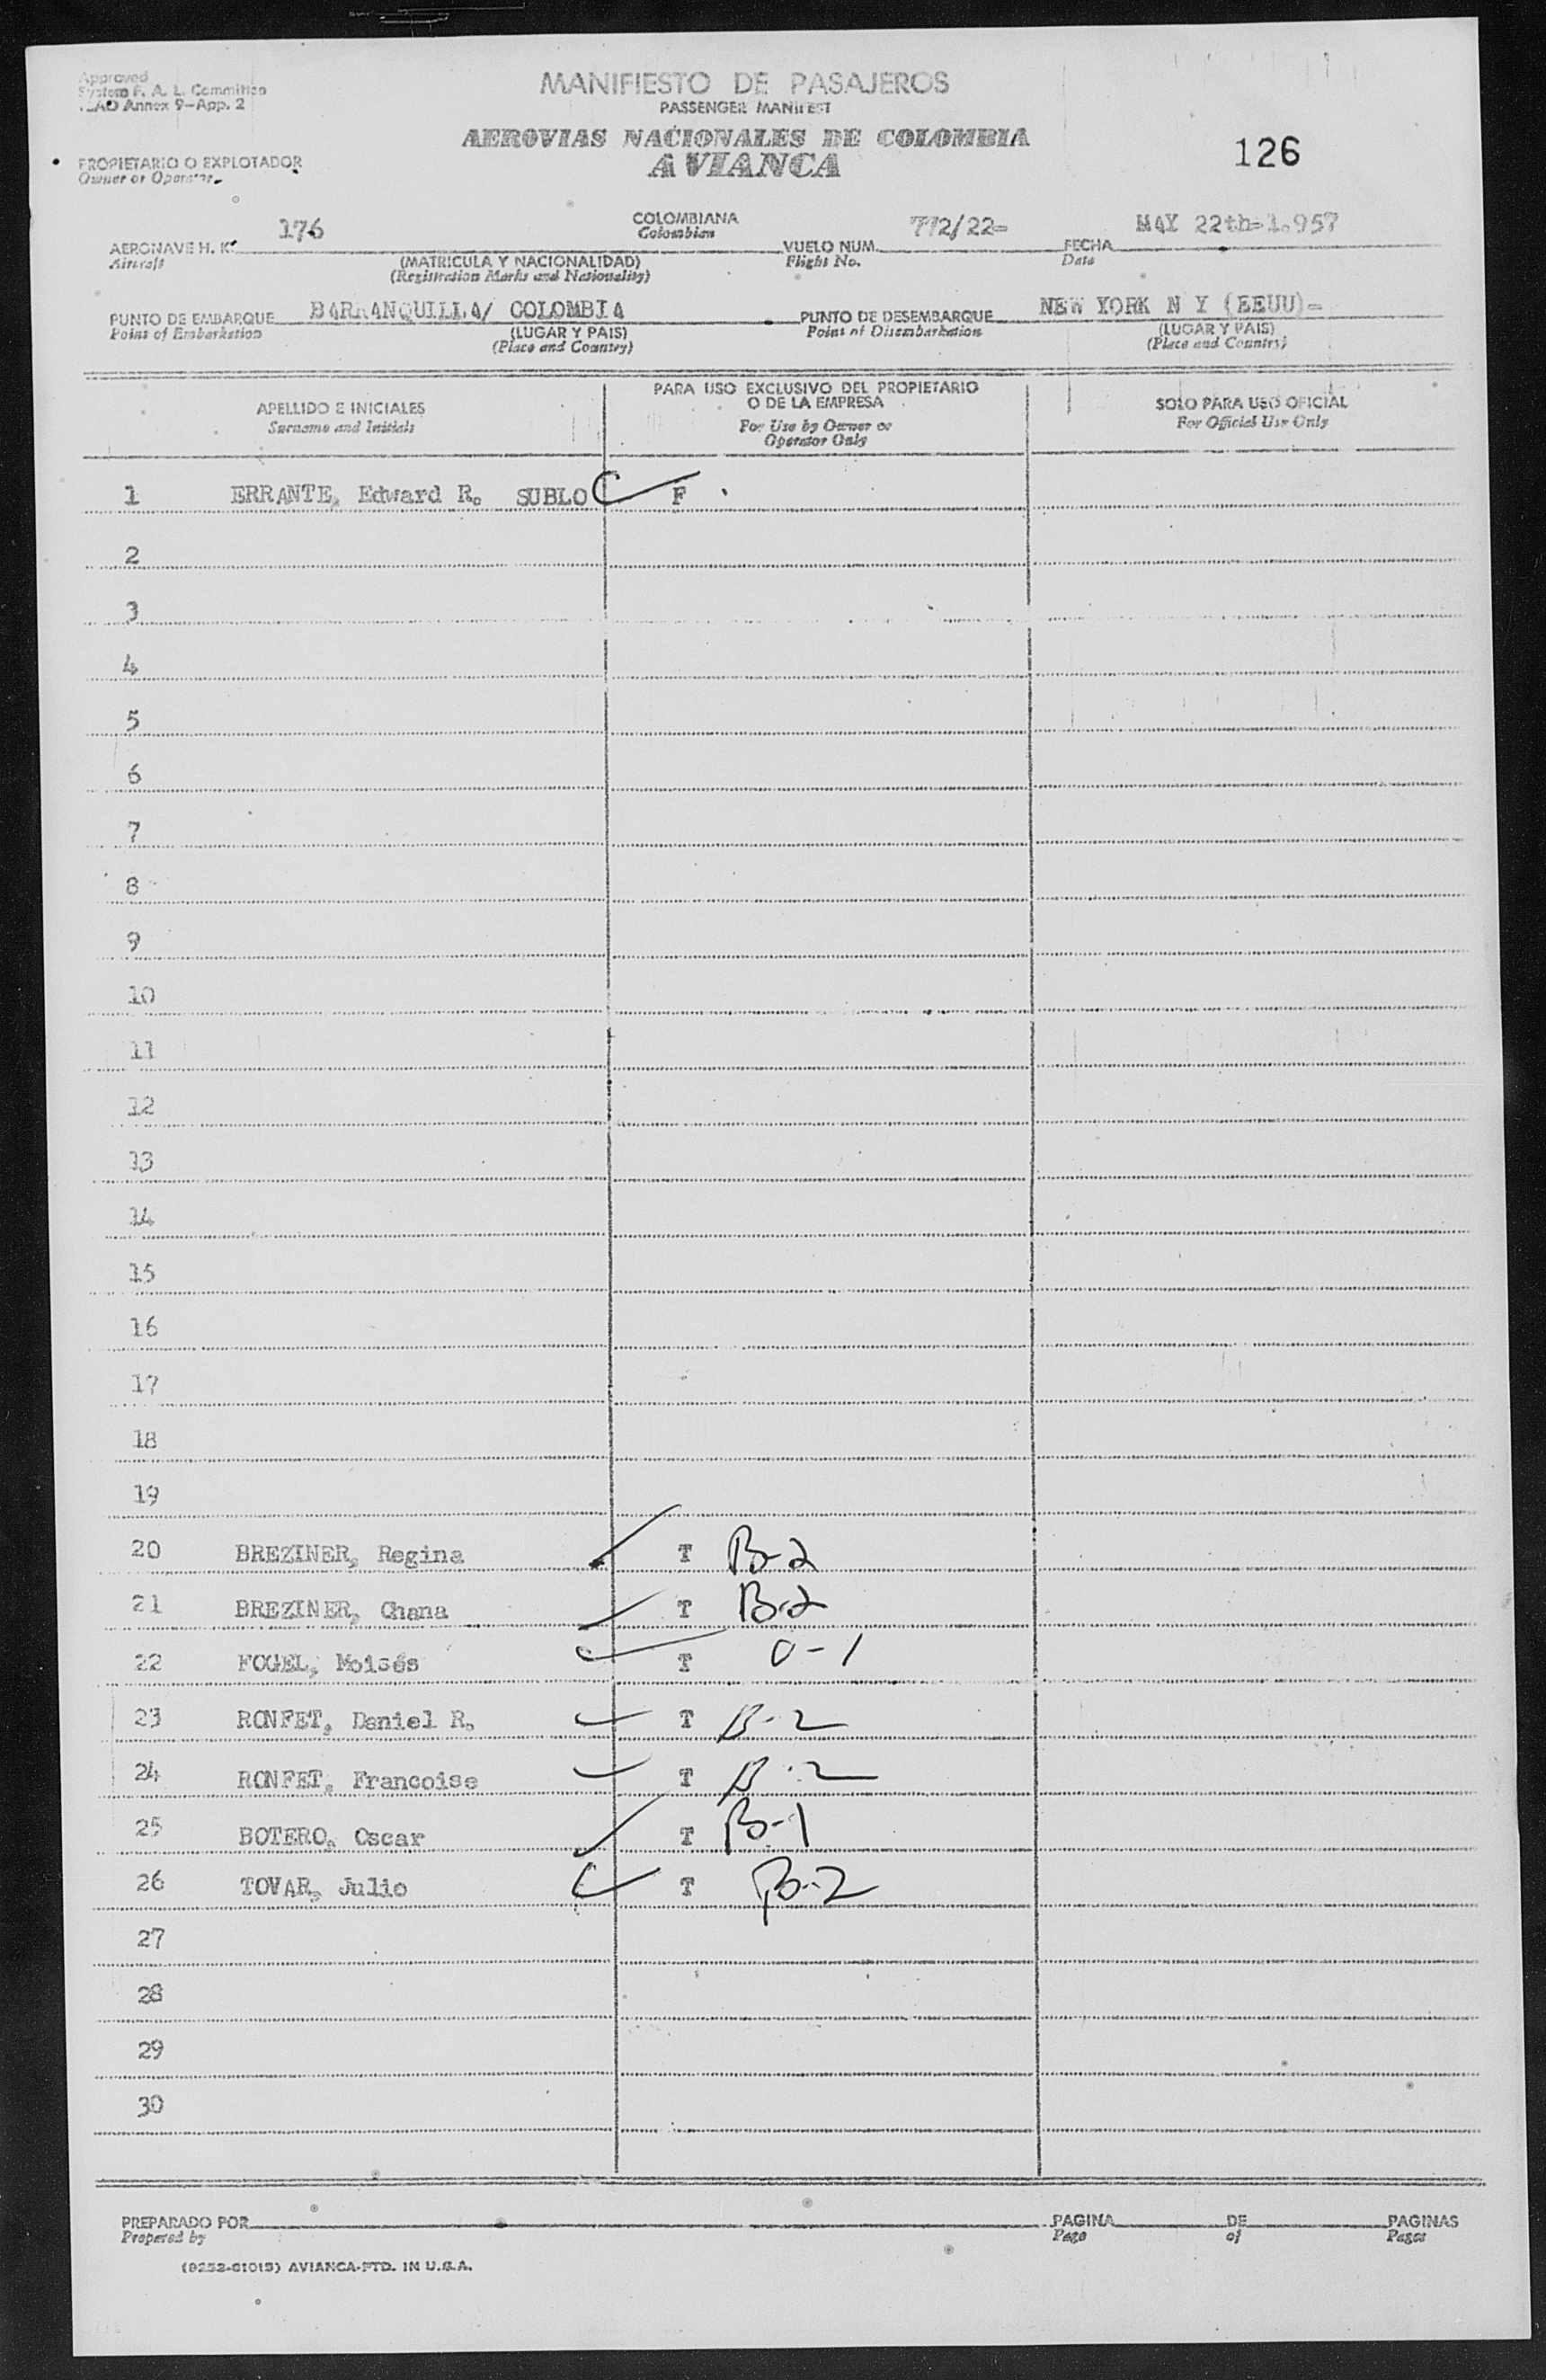 Approved
System F. A. L. Committee
ICAO Annex 9-App. 2
MANIFIESTO DE PASAJEROS
PASSENGER MANIFEST
AEROVIAS NACIONALES DE COLOMBIA
AVIANCA
126
PROPIETARIO O EXPLOTADOR
Owner or Operator
AERONAVE H. K. 176 COLOMBIANA VUELO NUM. 772/22= FECHA MAY 22th=1.957
Aircraft Colombian Flight No. Date
(MATRICULA Y NACIONALIDAD)
(Registration Marks and Nationality)
PUNTO DE EMBARQUE BARRANQUILLA/ COLOMBIA PUNTO DE DESEMBARQUE NEW YORK N Y (EEUU)=
Point of Embarkation (LUGAR Y PAIS) Point of Disembarkation (LUGAR Y PAIS)
(Place and Country) (Place and Country)
APELLIDO E INICIALES
Surname and Initials
PARA USO EXCLUSIVO DEL PROPIETARIO
O DE LA EMPRESA
For Use by Owner or
Operator Only
SOLO PARA USO OFICIAL
For Official Use Only
1 ERRANTE, Edward R. SUBLO F
2
3
4
5
6
7
8
9
10
11
12
13
14
15
16
17
18
19
20 BREZINER, Regina T B-2
21 BREZINER, Chana T B-2
22 FOGEL, Moisés T 0-1
23 RONFET, Daniel R. T B-2
24 RONFET, Francoise T B-2
25 BOTERO, Oscar T B-1
26 TOVAR, Julio T B-2
27
28
29
30
PREPARADO POR PAGINA DE PAGINAS
Prepared by Page of Pages
(9252-01015) AVIANCA-PTD. IN U.S.A.